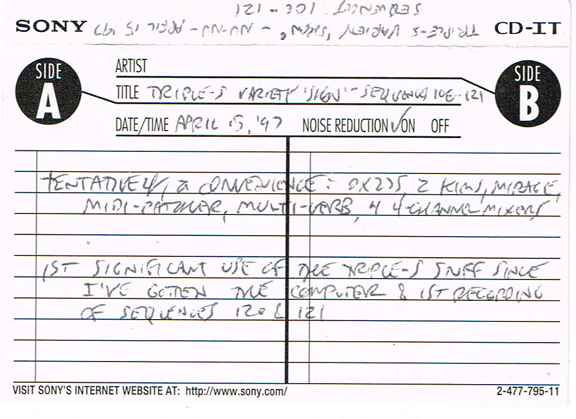 SEQUENCES 106-121
SONY TRIPLE-S VARIETY "SIGN" - NU-NU - APRIL 15 '97 CD-IT
SIDE A
ARTIST
SIDE B
TITLE TRIPLE-S VARIETY 'SIGN' - SEQUENCES 106-121
DATE/TIME APRIL 15, '97 NOISE REDUCTION √ON OFF
TENTATIVELY, a CONVENIENCE: DX27S, 2 KIMS, MIRAGE,
MIDI-PATCHER, MULTI-VERB, 4 4-CHANNEL MIXERS
1ST SIGNIFICANT USE OF THE TRIPLE-S STUFF SINCE
I'VE GOTTEN THE COMPUTER & 1ST RECORDING
OF SEQUENCES 120 & 121
VISIT SONY'S INTERNET WEBSITE AT: http://www.sony.com/ 2-477-795-11